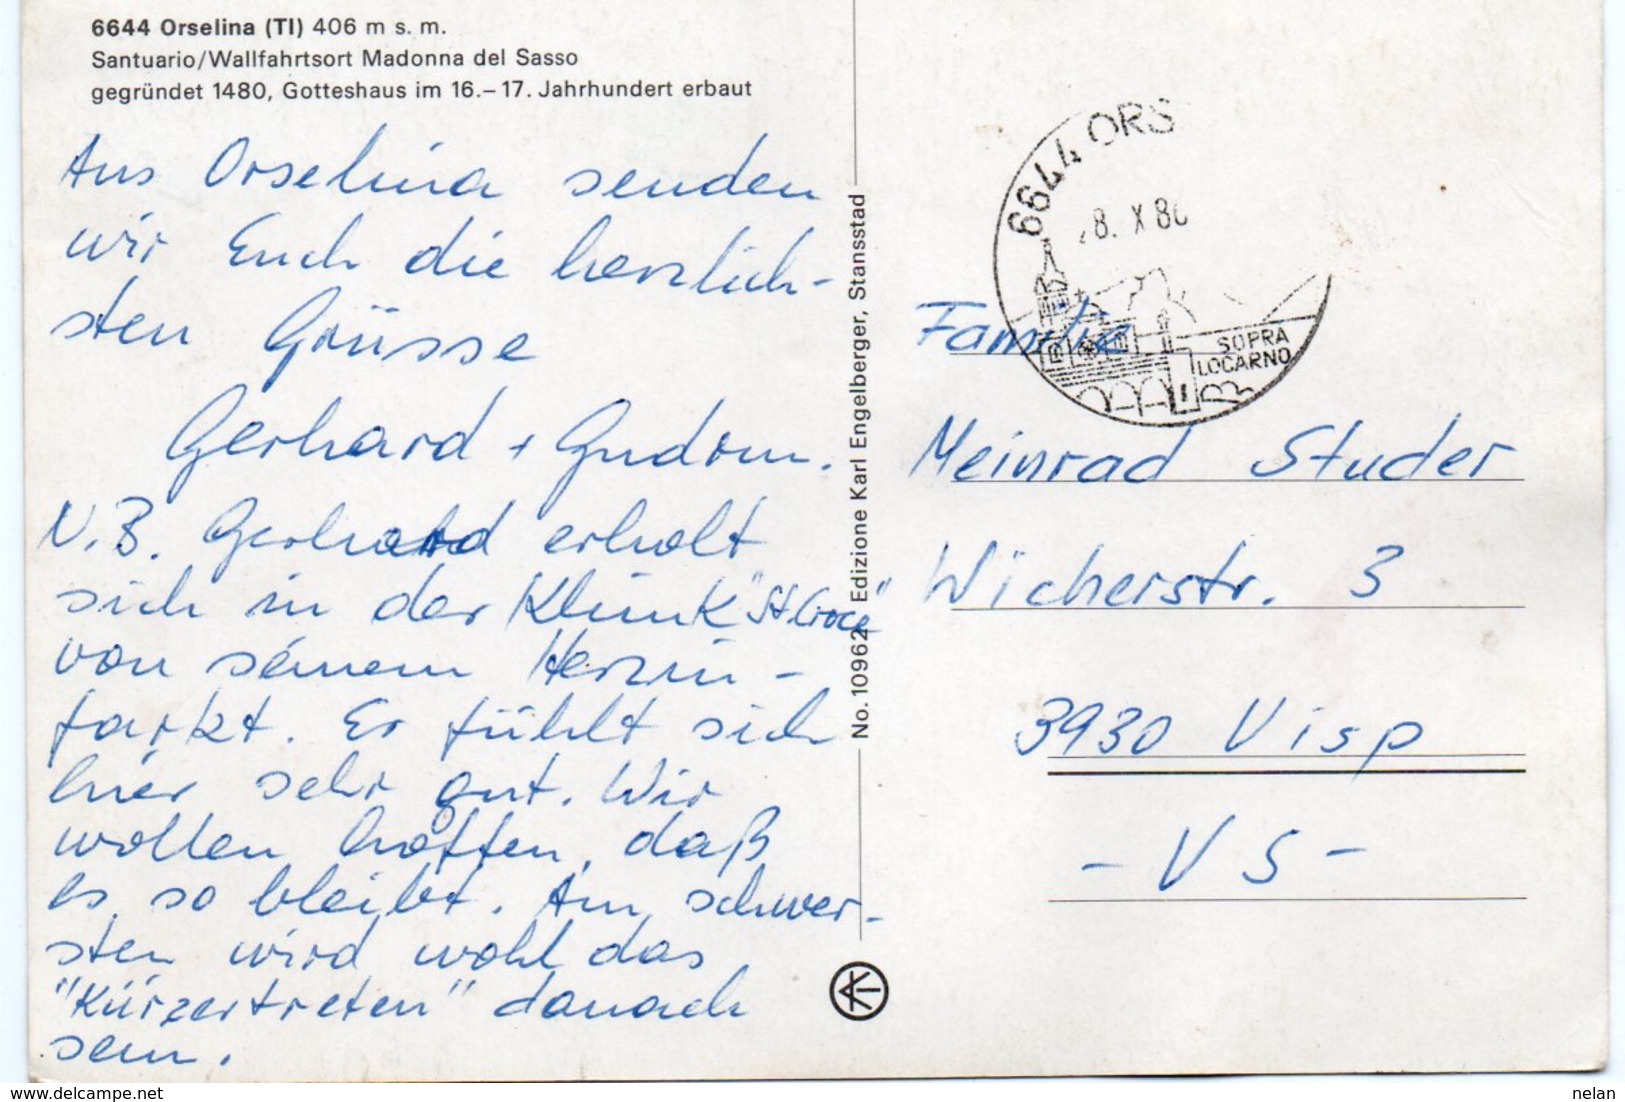 6644 Orselina (TI) 406 m s. m.
Santuario/Wallfahrtsort Madonna del Sasso
gegründet 1480, Gotteshaus im 16.–17. Jahrhundert erbaut
Aus Orselina senden
wir Euch die herzlich-
sten Grüsse
Gerhard + Gudrun.
N.B. Gerhard erholt
sich in der Klinik "St. Croce"
von seinem Herzin-
farkt. Er fühlt sich
hier sehr gut. Wir
wollen hoffen, daß
es so bleibt. Am schwer-
sten wird wohl das
"Kürzertreten" danach
sein.
No. 10962 Edizione Karl Engelberger, Stansstad
6644 ORS
8. X 86
SOPRA
LOCARNO
Familie
Meinrad Studer
Wicherstr. 3
3930 Visp
- VS -
delcampe.net
nelan